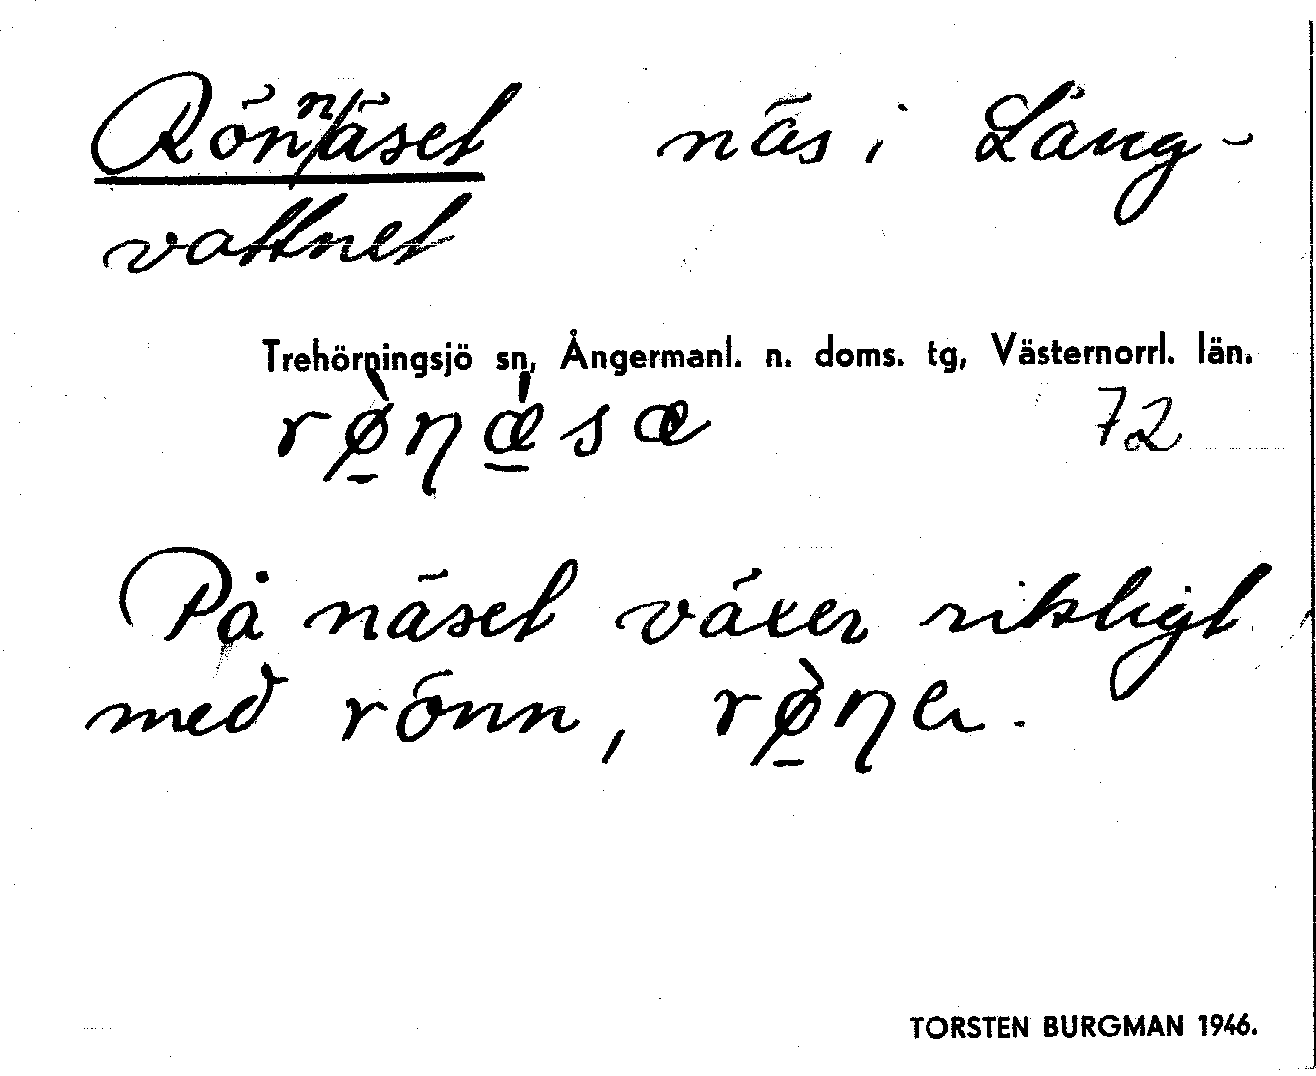 Rönnäset näs i Lång-
vattnet
Trehörningsjö sn, Ångermanl. n. doms. tg, Västernorrl. län.
rø̠̀ŋǽ̠sæ 72
På näset växer rikligt
med rönn, rø̠̀ŋer.
TORSTEN BURGMAN 1946.